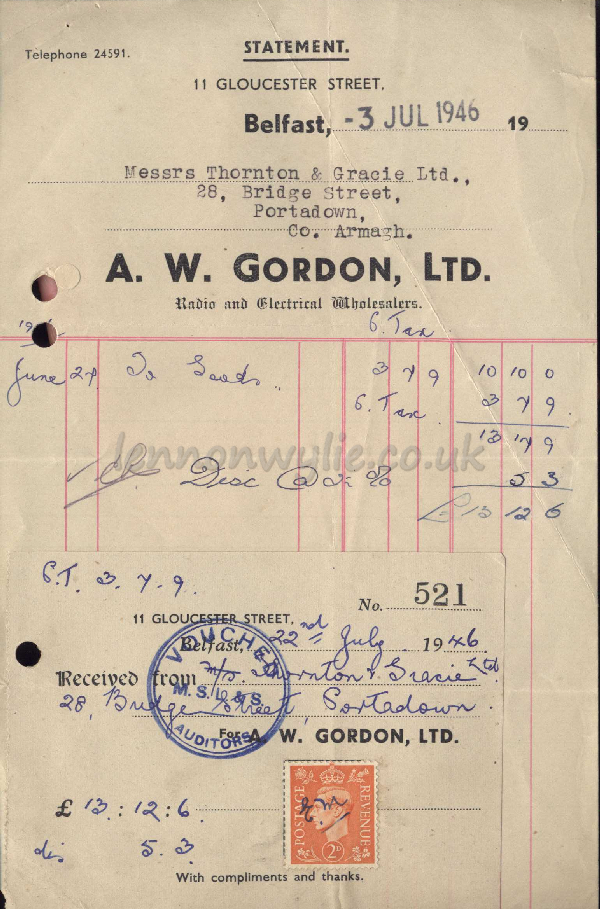 Telephone 24591.
STATEMENT.
11 GLOUCESTER STREET,
Belfast, -3 JUL 1946 19
Messrs Thornton & Gracie Ltd.,
28, Bridge Street,
Portadown,
Co. Armagh.
A. W. GORDON, LTD.
Radio and Electrical Wholesalers.
P. Tax
June 27 To Goods 3 7 9 10 10 0
P. Tax 3 7 9
13 17 9
Disc @ 2½ % 5 3
£ 13 12 6
lennonwylie.co.uk
P.T. 3. 7. 9.
No. 521
11 GLOUCESTER STREET,
Belfast, 22nd July 1946
Received from M/s Thornton & Gracie Ltd
28, Bridge Street, Portadown.
VOUCHED
M.S.L & S.
AUDITORS
For A. W. GORDON, LTD.
£ 13 : 12 : 6
dis 5. 3
POSTAGE REVENUE
2D
With compliments and thanks.